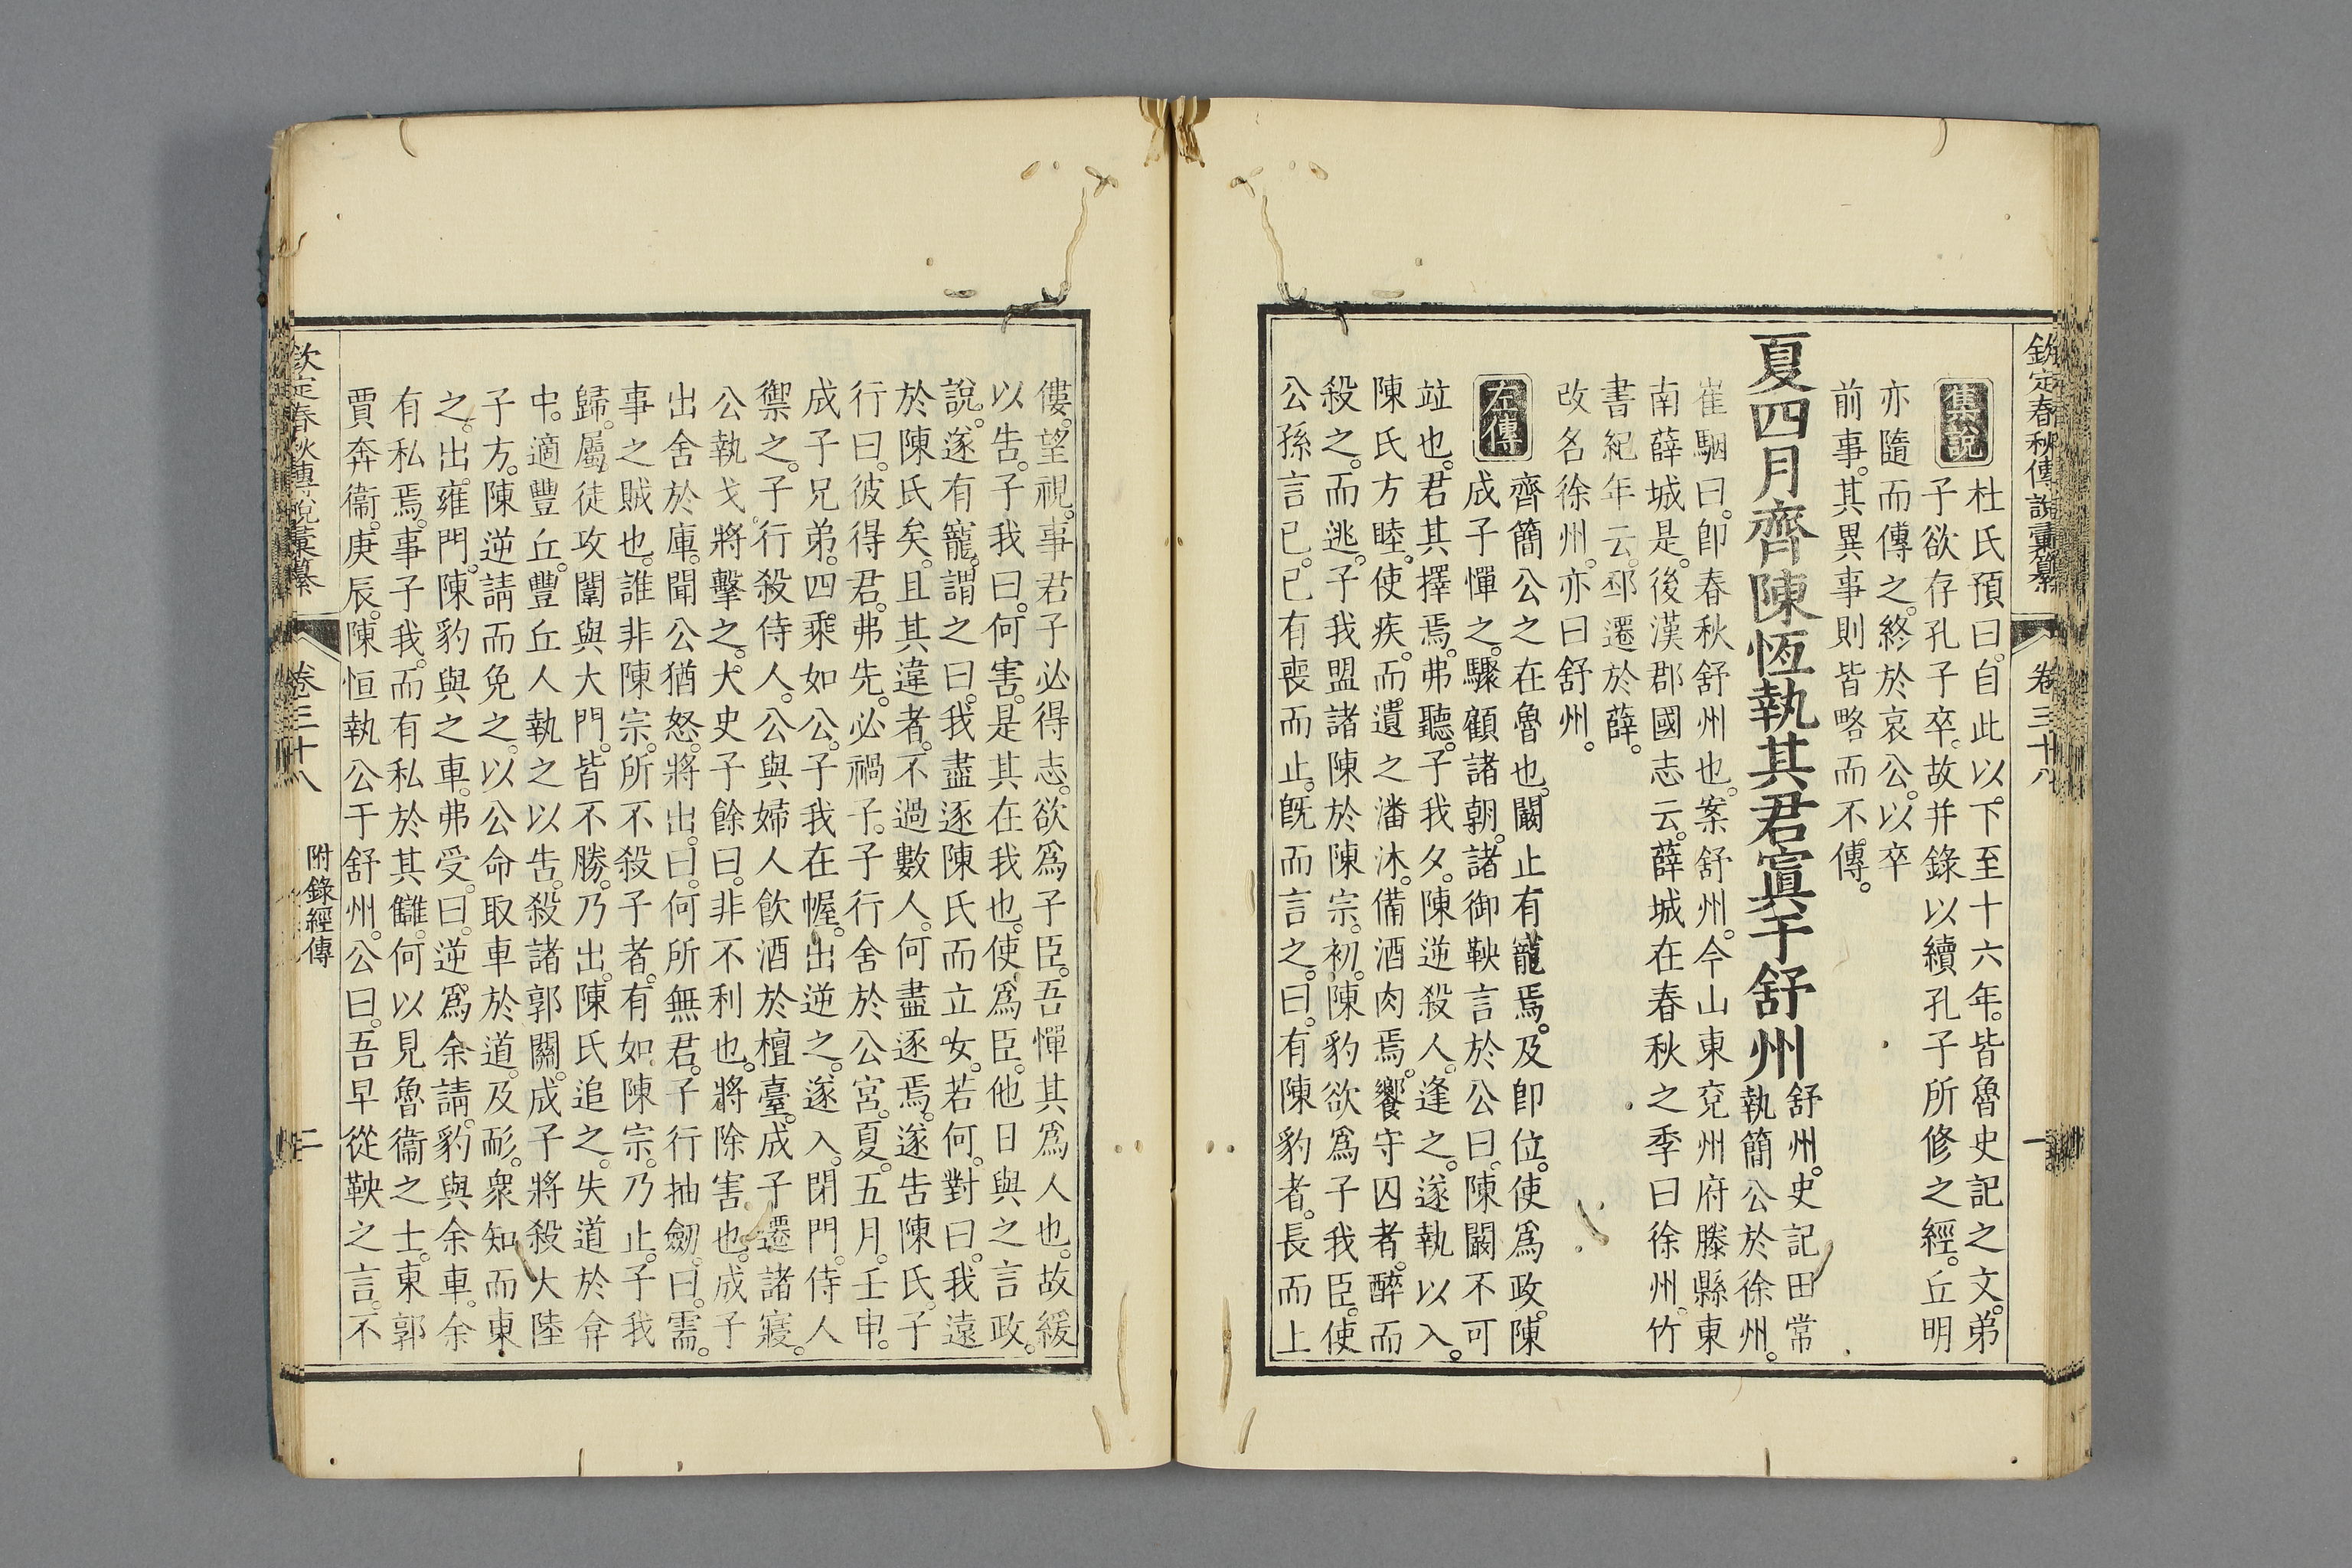 欽定春秋傳說彙纂 卷三十八 一
集說 杜氏預曰自此以下至十六年皆魯史記之文弟
子欲存孔子卒故并錄以續孔子所修之經丘明
亦隨而傳之終於哀公以卒
前事其異事則皆略而不傳
夏四月齊陳恆執其君寘于舒州 舒州史記田常
執簡公於徐州
崔駰曰卽春秋舒州也案舒州今山東兗州府滕縣東
南薛城是後漢郡國志云薛城在春秋之季曰徐州竹
書紀年云邳遷於薛
改名徐州亦曰舒州
左傳 齊簡公之在魯也闞止有寵焉及卽位使爲政陳
成子憚之驟顧諸朝諸御鞅言於公曰陳闞不可
竝也君其擇焉弗聽子我夕陳逆殺人逢之遂執以入
陳氏方睦使疾而遺之潘沐備酒肉焉饗守囚者醉而
殺之而逃子我盟諸陳於陳宗初陳豹欲爲子我臣使
公孫言已已有喪而止旣而言之曰有陳豹者長而上
僂望視事君子必得志欲爲子臣吾憚其爲人也故緩
以告子我曰何害是其在我也使爲臣他日與之言政
說遂有寵謂之曰我盡逐陳氏而立女若何對曰我遠
於陳氏矣且其違者不過數人何盡逐焉遂告陳氏子
行曰彼得君弗先必禍子子行舍於公宮夏五月壬申
成子兄弟四乘如公子我在幄出逆之遂入閉門侍人
禦之子行殺侍人公與婦人飲酒於檀臺成子遷諸寢
公執戈將擊之大史子餘曰非不利也將除害也成子
出舍於庫聞公猶怒將出曰何所無君子行抽劒曰需
事之賊也誰非陳宗所不殺子者有如陳宗乃止子我
歸屬徒攻闈與大門皆不勝乃出陳氏追之失道於弇
中適豐丘豐丘人執之以告殺諸郭關成子將殺大陸
子方陳逆請而免之以公命取車於道及耏衆知而東
之出雍門陳豹與之車弗受曰逆爲余請豹與余車余
有私焉事子我而有私於其讎何以見魯衞之士東郭
賈奔衞庚辰陳恒執公于舒州公曰吾早從鞅之言不
欽定春秋傳說彙纂 卷三十八 附錄經傳 二